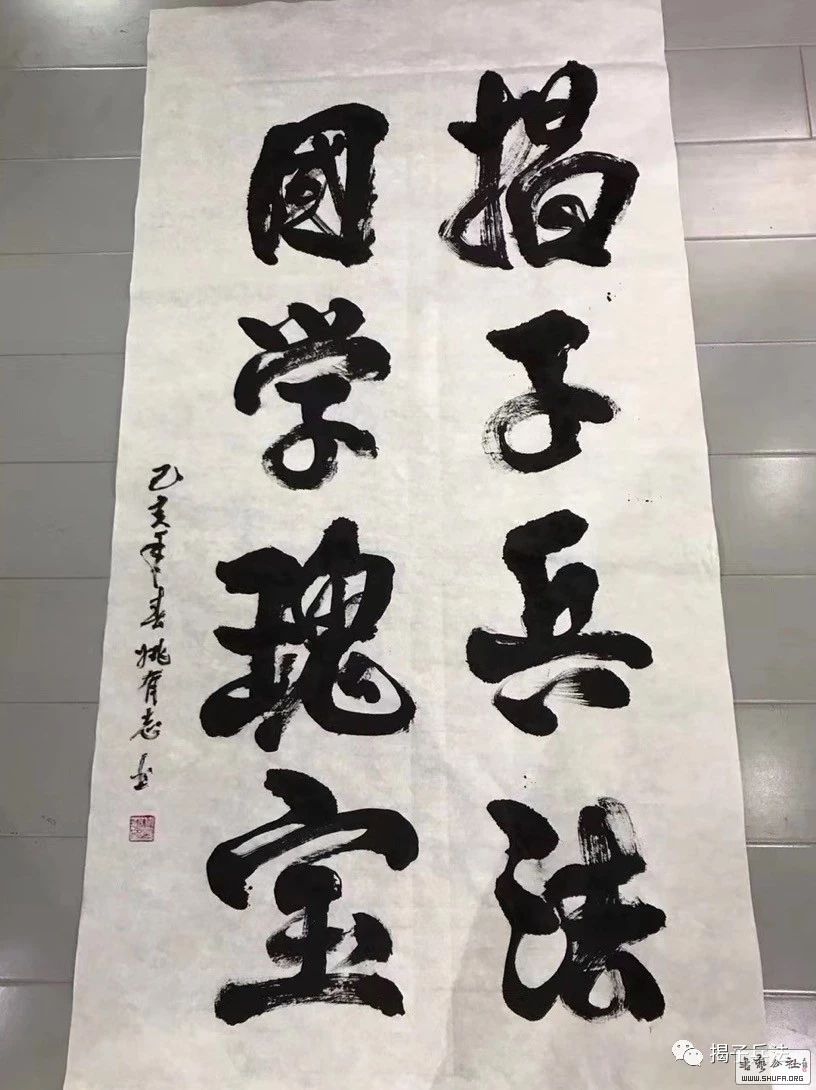 揭子兵法
國学瑰宝
己亥年春姚有志书
揭子兵法
WWW.SHUFA.ORG